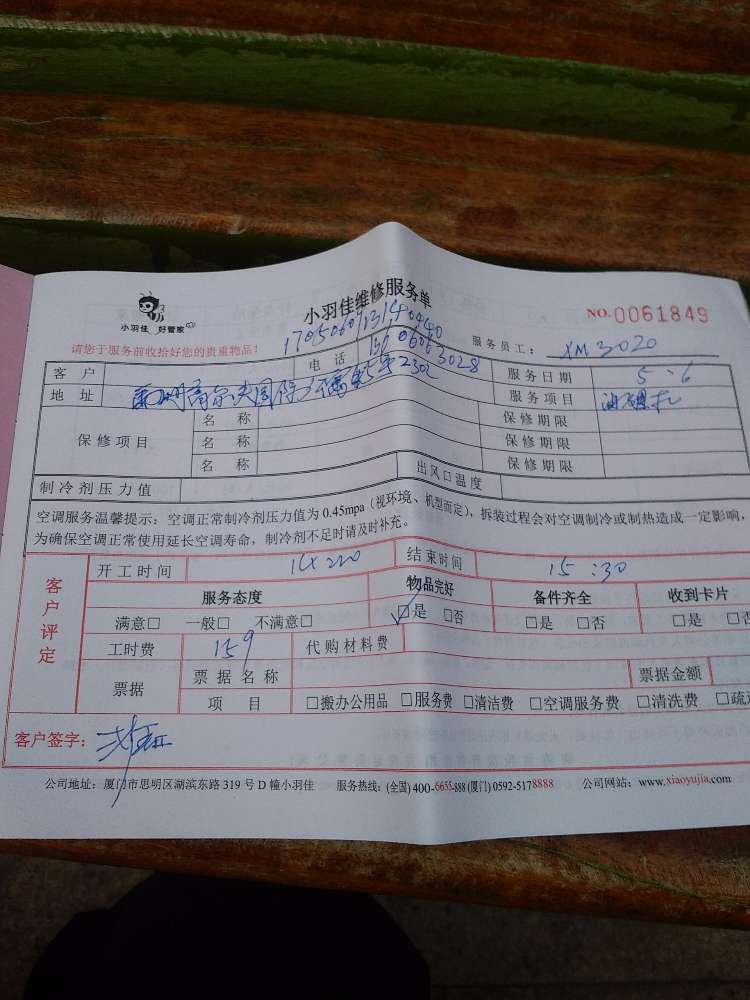 小羽佳维修服务单
小羽佳 好管家
NO.0061849
请您于服务前收拾好您的贵重物品!
服务员工: XM3020
客户 电话 服务日期 5.6
地址 2302 服务项目
保修项目 名称 保修期限
名称 保修期限
名称 保修期限
制冷剂压力值 出风口温度
空调服务温馨提示:空调正常制冷剂压力值为0.45mpa(视环境、机型而定),拆装过程会对空调制冷或制热造成一定影响,
为确保空调正常使用延长空调寿命,制冷剂不足时请及时补充。
客户评定
开工时间 结束时间 15:30
服务态度 物品完好 备件齐全 收到卡片
满意□ 一般□ 不满意□ ☑是 □否 □是 □否 □是 □否
工时费 159 代购材料费
票据 票据名称 票据金额
项目 □搬办公用品 □服务费 □清洁费 □空调服务费 □清洗费 □疏通
客户签字:
公司地址:厦门市思明区湖滨东路319号D幢小羽佳 服务热线:(全国)400-6655-888(厦门)0592-5178888 公司网站:www.xiaoyujia.com